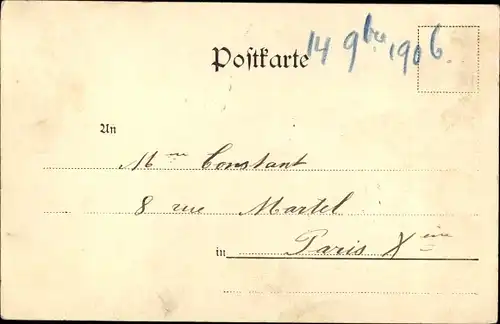 Postkarte 14 9bre 1906.
An
Mme Constant
8 rue Martel
in Paris Xème